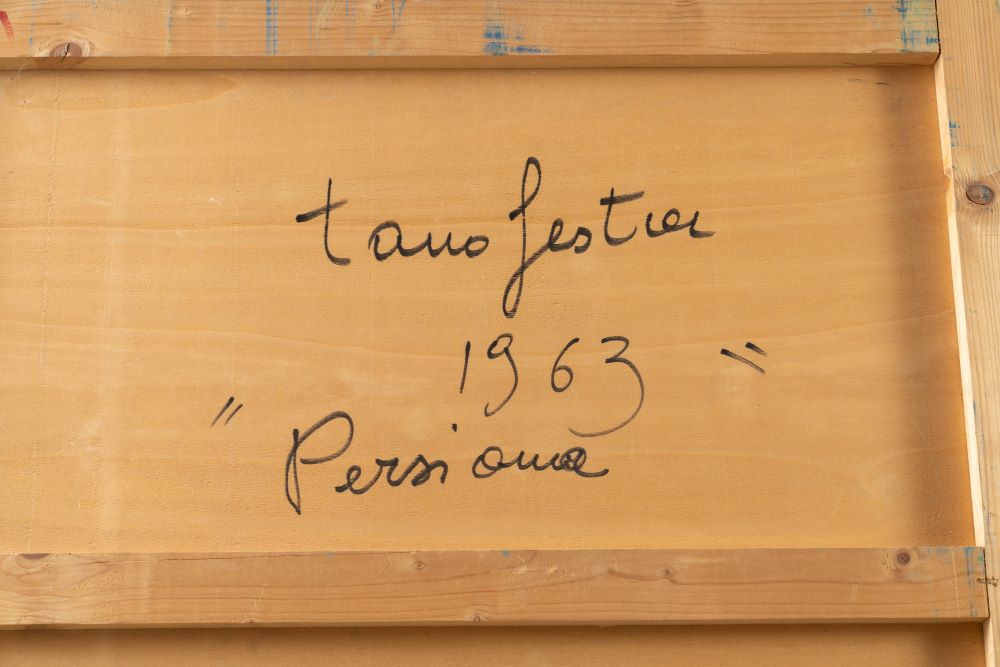 tano festa
1963
"Persiana"